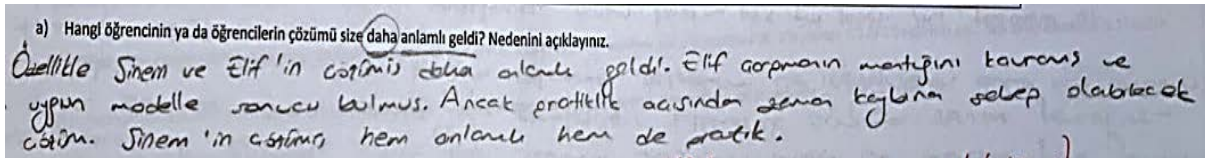 a) Hangi öğrencinin ya da öğrencilerin çözümü size daha anlamlı geldi? Nedenini açıklayınız.
Özellikle Sinem ve Elif'in çözümü daha anlamlı geldi. Elif çarpmanın mantığını kavramış ve
uygun modelle sonucu bulmuş. Ancak pratiklik açısından zaman kaybına sebep olabilecek
çözüm. Sinem'in çözümü hem anlamlı hem de pratik.